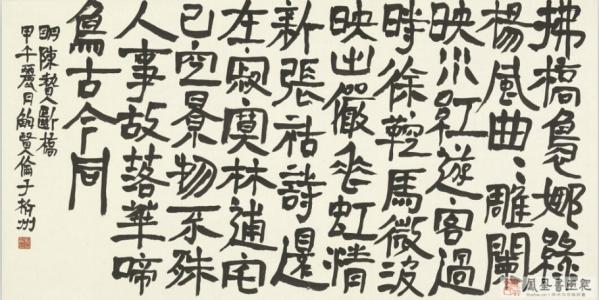 拂橋裊娜綠
楊風曲〻雕闌
映水紅遊客過
時徐鞚馬微波
映出儼垂虹清
新張祜詩還
在寂寞林逋宅
已空景物不殊
人事故落華啼
鳥古今同
明陳贄斷橋
甲午夏日鮑賢倫于杭州